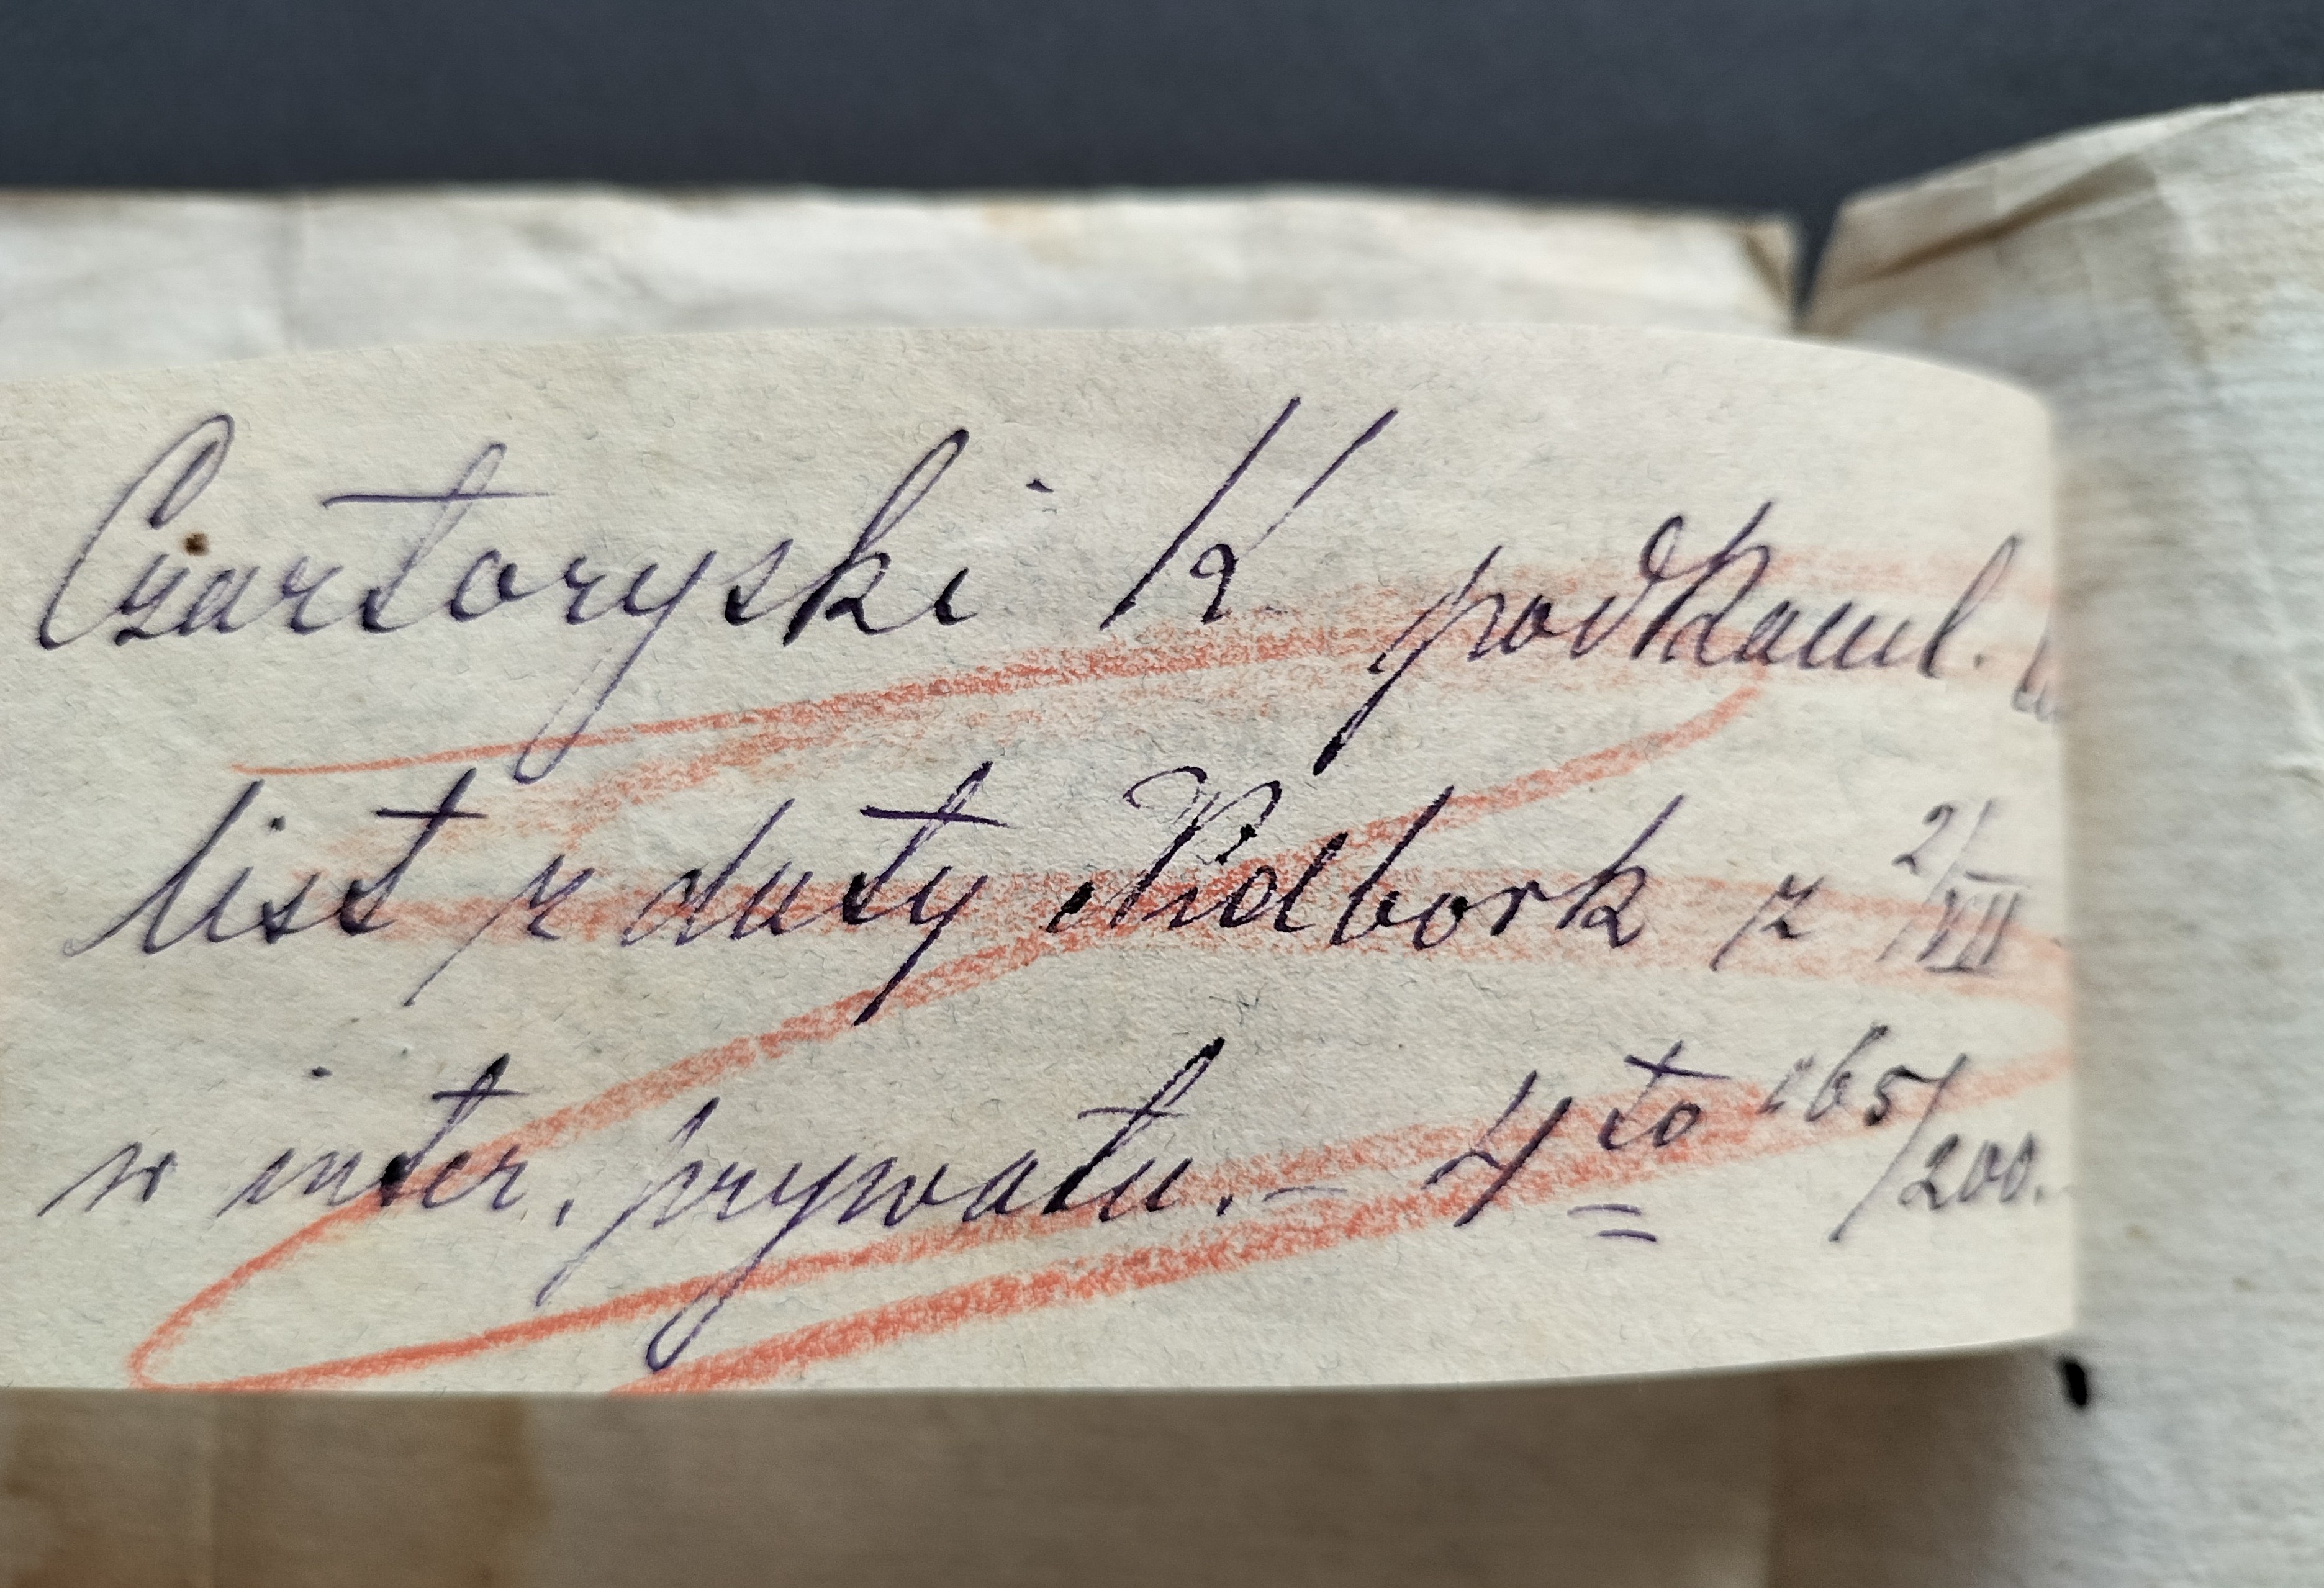 Czartoryski K podkaml.
list z daty Nidbork z 2/VII
w inter. prywatn. – 4 to 165/200.